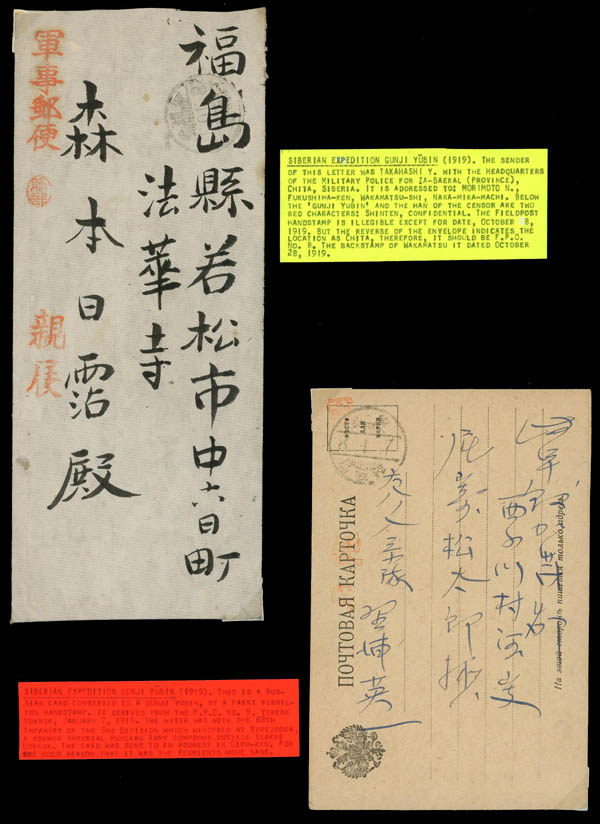 福島縣若松市中六日町
法華寺
森本日霑殿
軍事郵便
親展
SIBERIAN EXPEDITION GUNJI YŪBIN (1919). THE SENDER
OF THIS LETTER WAS TAKAHASHI Y. WITH THE HEADQUARTERS
OF THE MILITARY POLICE FOR ZA-BAEKAL (PROVINCE),
CHITA, SIBERIA. IT IS ADDRESSED TO: MORIMOTO N.,
FUKUSHIMA-KEN, WAKAMATSU-SHI, NAKA-MIKA-MACHI. BELOW
THE 'GUNJI YUBIN' AND THE HAN OF THE CENSOR ARE TWO
RED CHARACTERS: SHINTEN, CONFIDENTIAL. THE FIELDPOST
HANDSTAMP IS ILLEGIBLE EXCEPT FOR DATE, OCTOBER 8,
1919. BUT THE REVERSE OF THE ENVELOPE INDICATES THE
LOCATION AS CHITA, THEREFORE, IT SHOULD BE F.P.O.
NO. 8. THE BACKSTAMP OF WAKAMATSU IT DATED OCTOBER
28, 1919.
место
для
марки.
ПОЧТОВАЯ КАРТОЧКА
На этой стороне пишется только адрес
西
川村
松太郎
英一
SIBERIAN EXPEDITION GUNJI YŪBIN (1919). THIS IS A RUS-
SIAN CARD CONVERTED TO A GUNJI YUBIN, BY A FAINT VERMIL-
ION HANDSTAMP. IT DERIVES FROM THE F.P.O. NO. 9, VERKNE
UDINSK, JANUARY 7, 1919. THE WRITER WAS WITH THE 68TH
INFANTRY OF THE 3RD DIVISION WHICH WINTERED AT BEREZOSKA,
A FORMER IMPERIAL RUSSIAN ARMY COMPOUND OUTSIDE VERKNE
UDINSK. THE CARD WAS SENT TO AN ADDRESS IN GIFU-KEN, FOR
THE GOOD REASON THAT IT WAS THE REGIMENTS HOME BASE.